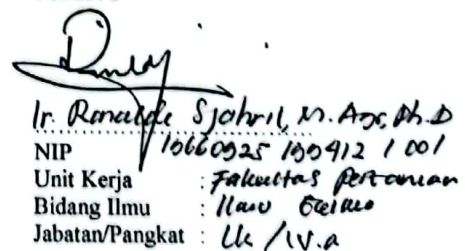 Ir. Rinaldi Sjahril, M. Agr, Ph.D
NIP 19660925 199412 1 001
Unit Kerja : Fakultas Pertanian
Bidang Ilmu : Ilmu
Jabatan/Pangkat : Lk / IV.a